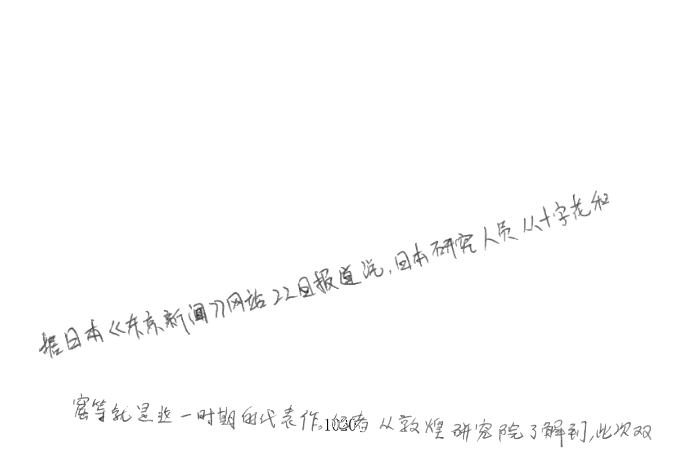 据日本《东京新闻》网站22日报道说,日本研究人员从十字花和
窟等就是这一时期的代表作。记者从敦煌研究院了解到,此次双
1020